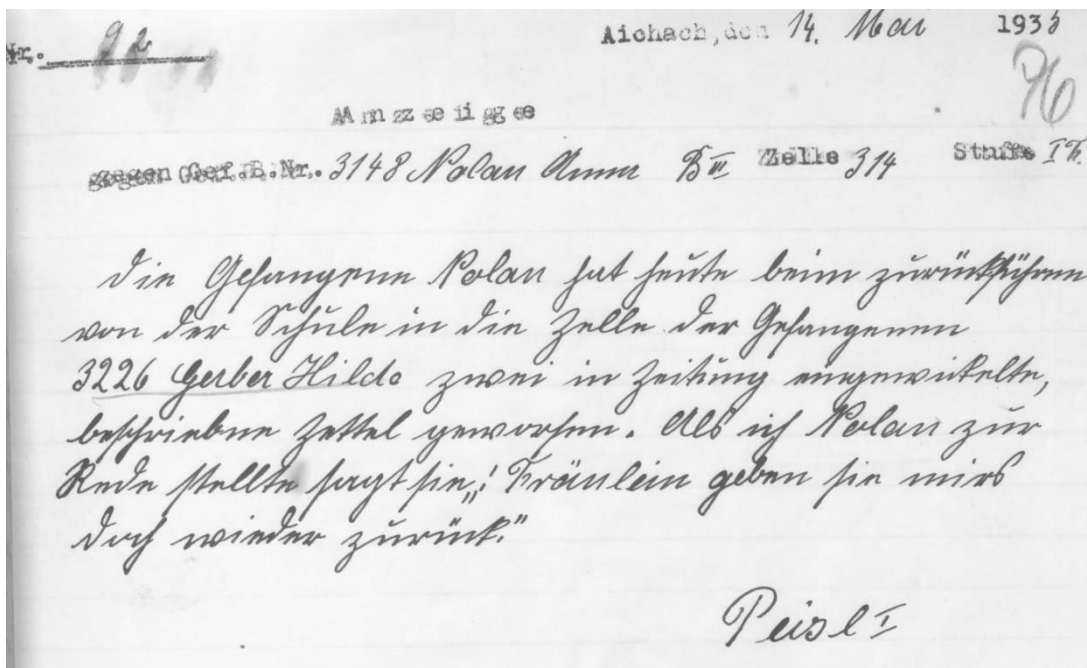 Nr. 92
Aichach, den 14. Mai 1935
Anzeige
gegen Gef.B.Nr. 3148 Nolan Anna B III Zelle 314 Stuffe I
Die Gefangene Nolan hat heute beim zurückführen
von der Schule in die Zelle der Gefangenen
3226 Gerber Hilde zwei in Zeitung eingewickelte,
beschriebne Zettel geworfen. Als ich Nolan zur
Rede stellte sagt sie,,! Fräulein geben sie mirs
doch wieder zurück."
Peisl I